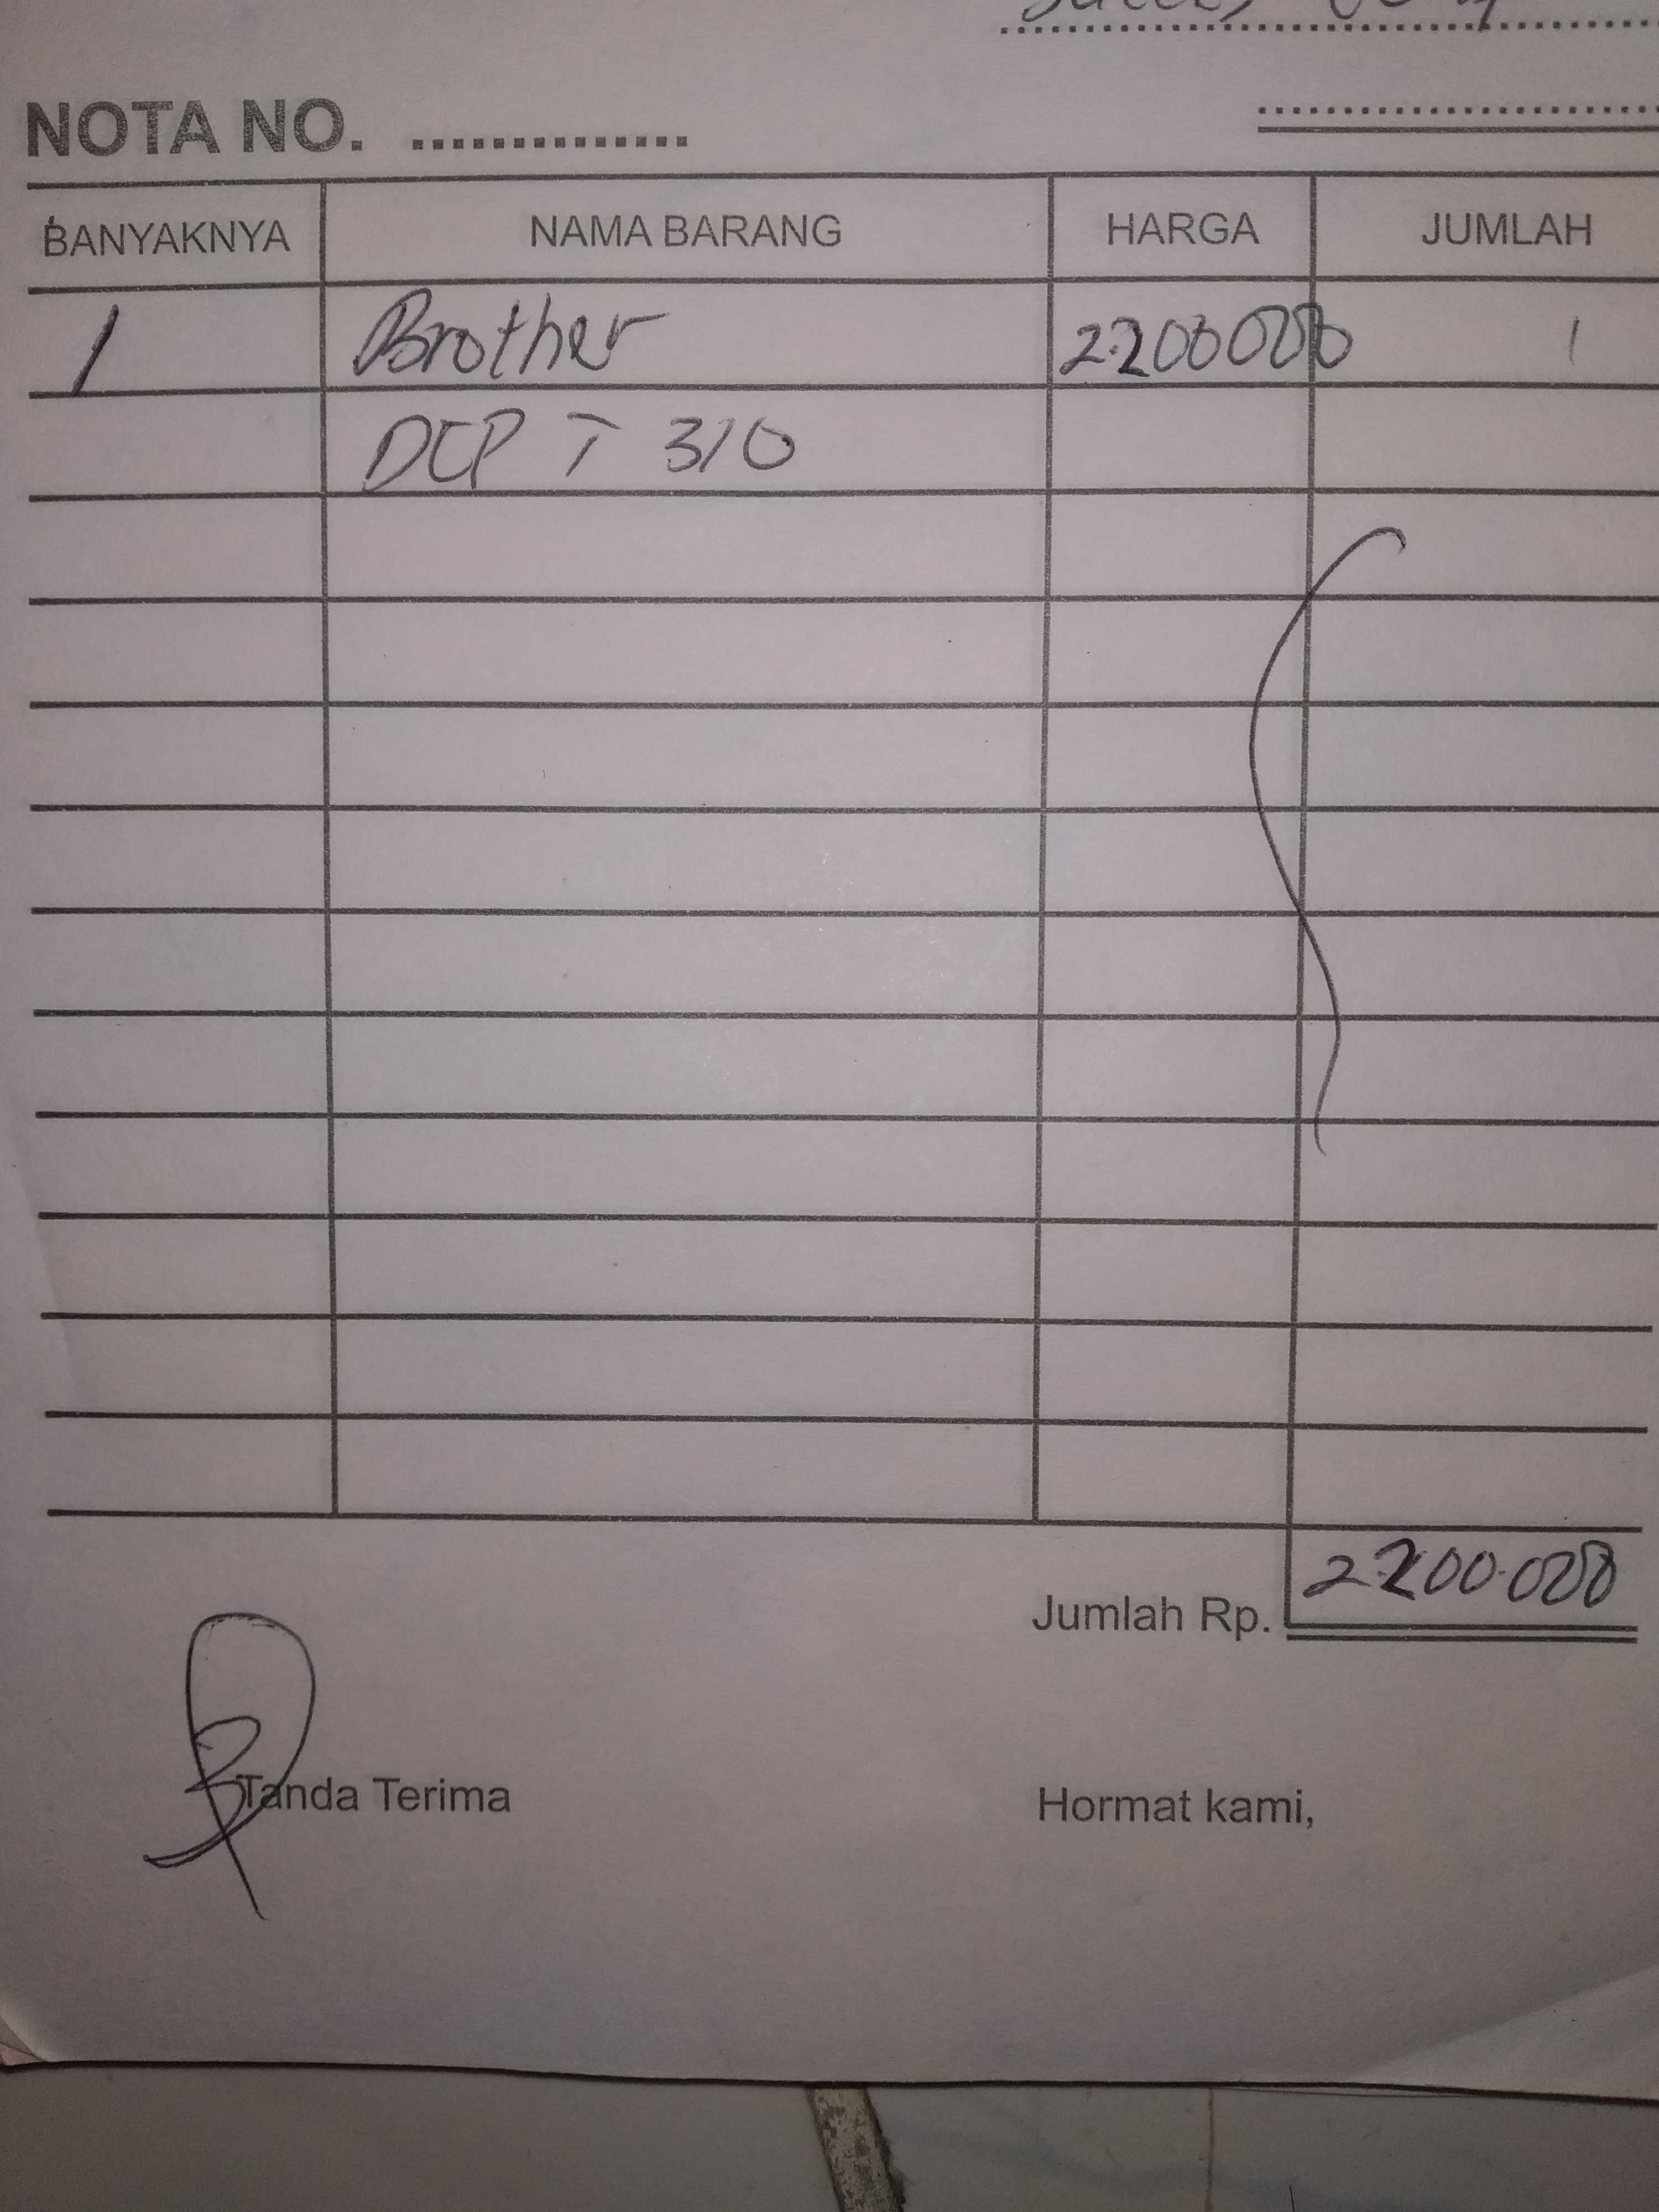 NOTA NO. ...............
BANYAKNYA NAMA BARANG HARGA JUMLAH
1 Brother 2.200000 1
DCP T 310
Jumlah Rp. 2.200.000
Tanda Terima Hormat kami,